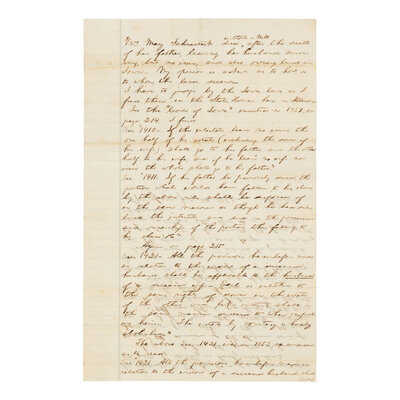 Mrs. Mary dies, after the death
of her father, leaving her husband surviv-
ing, but no issue, and also owning land in
Iowa. My opinion is asked as to how &
to whom the land descends.
I have to judge by the Iowa law as I
find them on the State House law in
In the "Code of Iowa" enacted in 1851 on
page 214 I find
Sec "1410. If the intestate leave no issue the
one half of his estate (including the dower of
his wife) shall go to his father and the other
half to his wife. If he leaves no wife nor
issue the whole shall go to his father."
Sec "1411. If his father be previously dead the
portion which would have fallen to his share
by the above rules shall be disposed of
in the same manner as though he had out-
lived the intestate and died in the possession
and ownership of the portion thus falling to
his share &c"
on page 215
Sec 1421. All the provisions hereinbefore made
in relation to the widow of a deceased
husband shall be applicable to the husband
of a deceased wife. Each is entitled to
the same rights of dower in the estate
of the other and like interest shall
in the same manner descend to their respect
ive heirs. The estate by courtesy is hereby
abolished"
The above Sec 1421 was in 1853
to read
Sec 1421. All the provisions hereinbefore made in
relation to the widow of a deceased husband shall